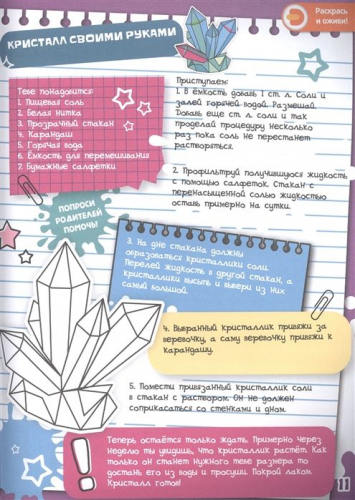 КРИСТАЛЛ СВОИМИ РУКАМИ
Раскрась
и оживи!
Тебе понадобится:
1. Пищевая соль
2. Белая нитка
3. Прозрачный стакан
4. Карандаш
5. Горячая вода
6. Ёмкость для перемешивания
7. Бумажные салфетки
Приступаем:
1. В ёмкость добавь 1 ст. л. Соли и
залей горячей водой. Размешай.
Добавь еще ст. л. соли и так
проделай процедуру несколько
раз пока соль не перестанет
растворяться.
2. Профильтруй получившуюся жидкость
с помощью салфеток. Стакан с
перенасыщенной солью жидкостью
оставь примерно на сутки.
ПОПРОСИ
РОДИТЕЛЕЙ
ПОМОЧЬ!
3. На дне стакана должны
образоваться кристаллики соли.
Перелей жидкость в другой стакан, а
кристаллики высыпь и выбери из них
самый большой.
4. Выбранный кристаллик привяжи за
веревочку, а саму веревочку привяжи к
карандашу.
5. Помести привязанный кристаллик соли
в стакан с раствором. Он не должен
соприкасаться со стенками и дном.
Теперь остаётся только ждать. Примерно через
неделю ты увидишь, что кристаллик растёт. Как
только он станет нужного тебе размера то
достань его из воды и просуши. Покрой лаком.
Кристалл готов!
11